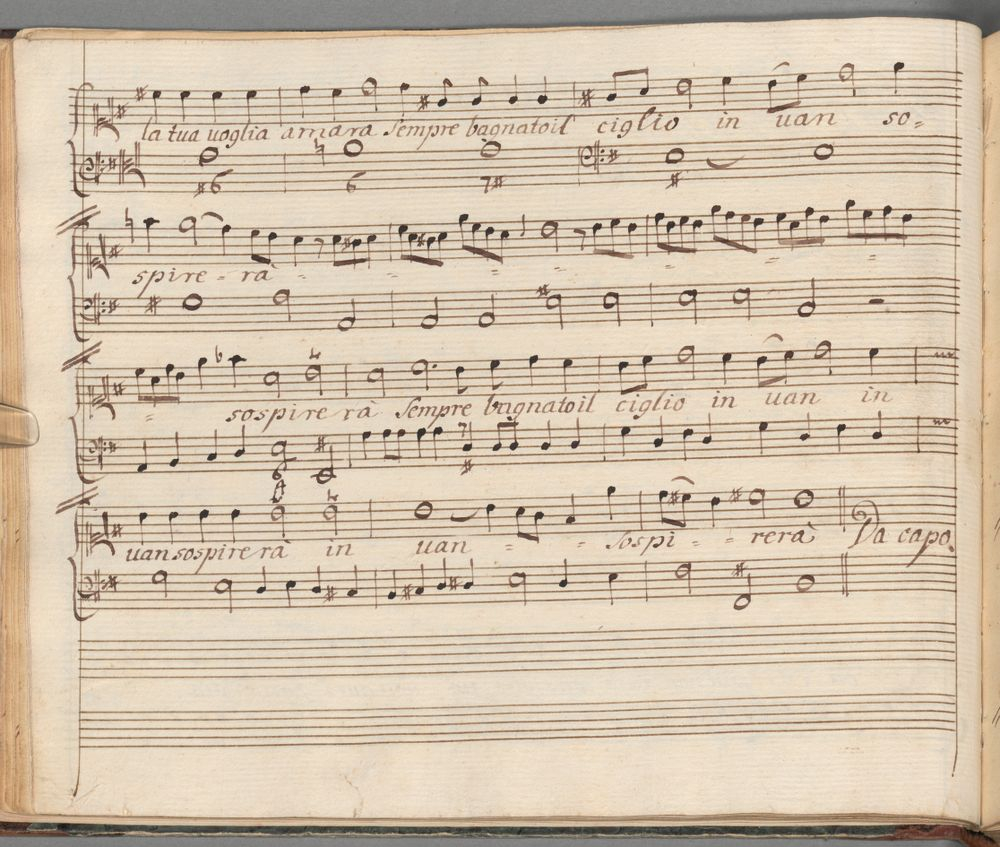 la tua uoglia amara sempre bagnatoil ciglio in uan so=
#6 6 7# #
spire = rà = = = = = = = =
= sospire rà sempre bagnatoil ciglio in uan in
6 #
uan sospire rà in uan = = = sospi = = rerà Da capo.